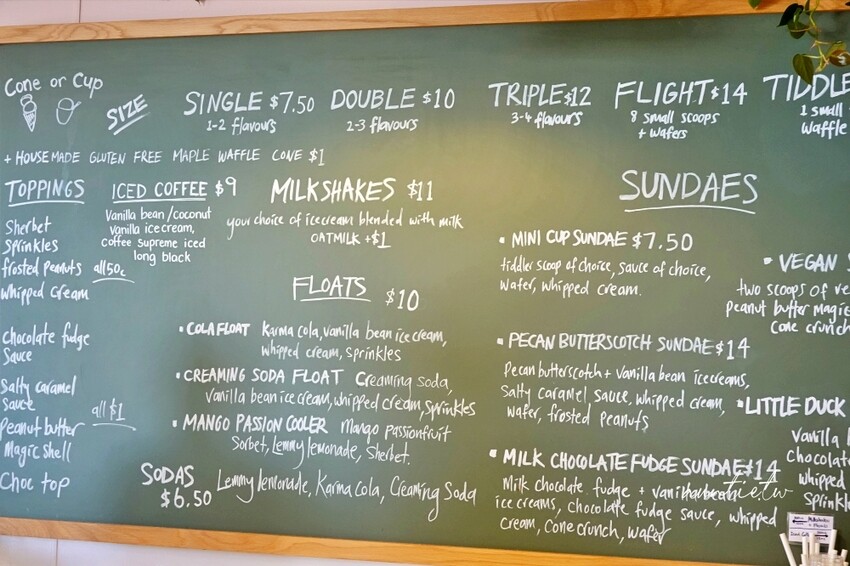 Cone or Cup
SIZE
SINGLE $7.50
1-2 flavours
DOUBLE $10
2-3 flavours
TRIPLE $12
3-4 flavours
FLIGHT $14
8 small scoops
+ wafers
TIDDLE
1 small
waffle
+ HOUSEMADE GLUTEN FREE MAPLE WAFFLE CONE $1
TOPPINGS
Sherbet
Sprinkles
frosted peanuts
whipped cream
all 50c
chocolate fudge
sauce
Salty caramel
sauce
Peanut butter
Magic shell
Choc top
all $1
ICED COFFEE $9
Vanilla bean/coconut
vanilla icecream,
coffee supreme iced
long black
MILKSHAKES $11
your choice of icecream blended with milk
OATMILK +$1
FLOATS $10
• COLA FLOAT Karma cola, vanilla bean icecream,
whipped cream, sprinkles
• CREAMING SODA FLOAT Creaming soda,
vanilla bean icecream, whipped cream, sprinkles
• MANGO PASSION COOLER Mango passionfruit
Sorbet, Lemmy lemonade, Sherbet.
SODAS
$6.50
Lemmy lemonade, Karma Cola, Creaming Soda
SUNDAES
• MINI CUP SUNDAE $7.50
tiddler scoop of choice, sauce of choice,
wafer, whipped cream.
• PECAN BUTTERSCOTCH SUNDAE $14
Pecan butterscotch + vanilla bean icecreams,
Salty caramel sauce, whipped cream,
wafer, frosted peanuts
• MILK CHOCOLATE FUDGE SUNDAE $14
Milk chocolate fudge + vanilla bean
ice creams, chocolate fudge sauce, whipped
cream, cone crunch, wafer
• VEGAN S
two scoops of ve
Peanut butter magic
cone crunch
• LITTLE DUCK
Vanilla
chocolat
whipped
sprinkl